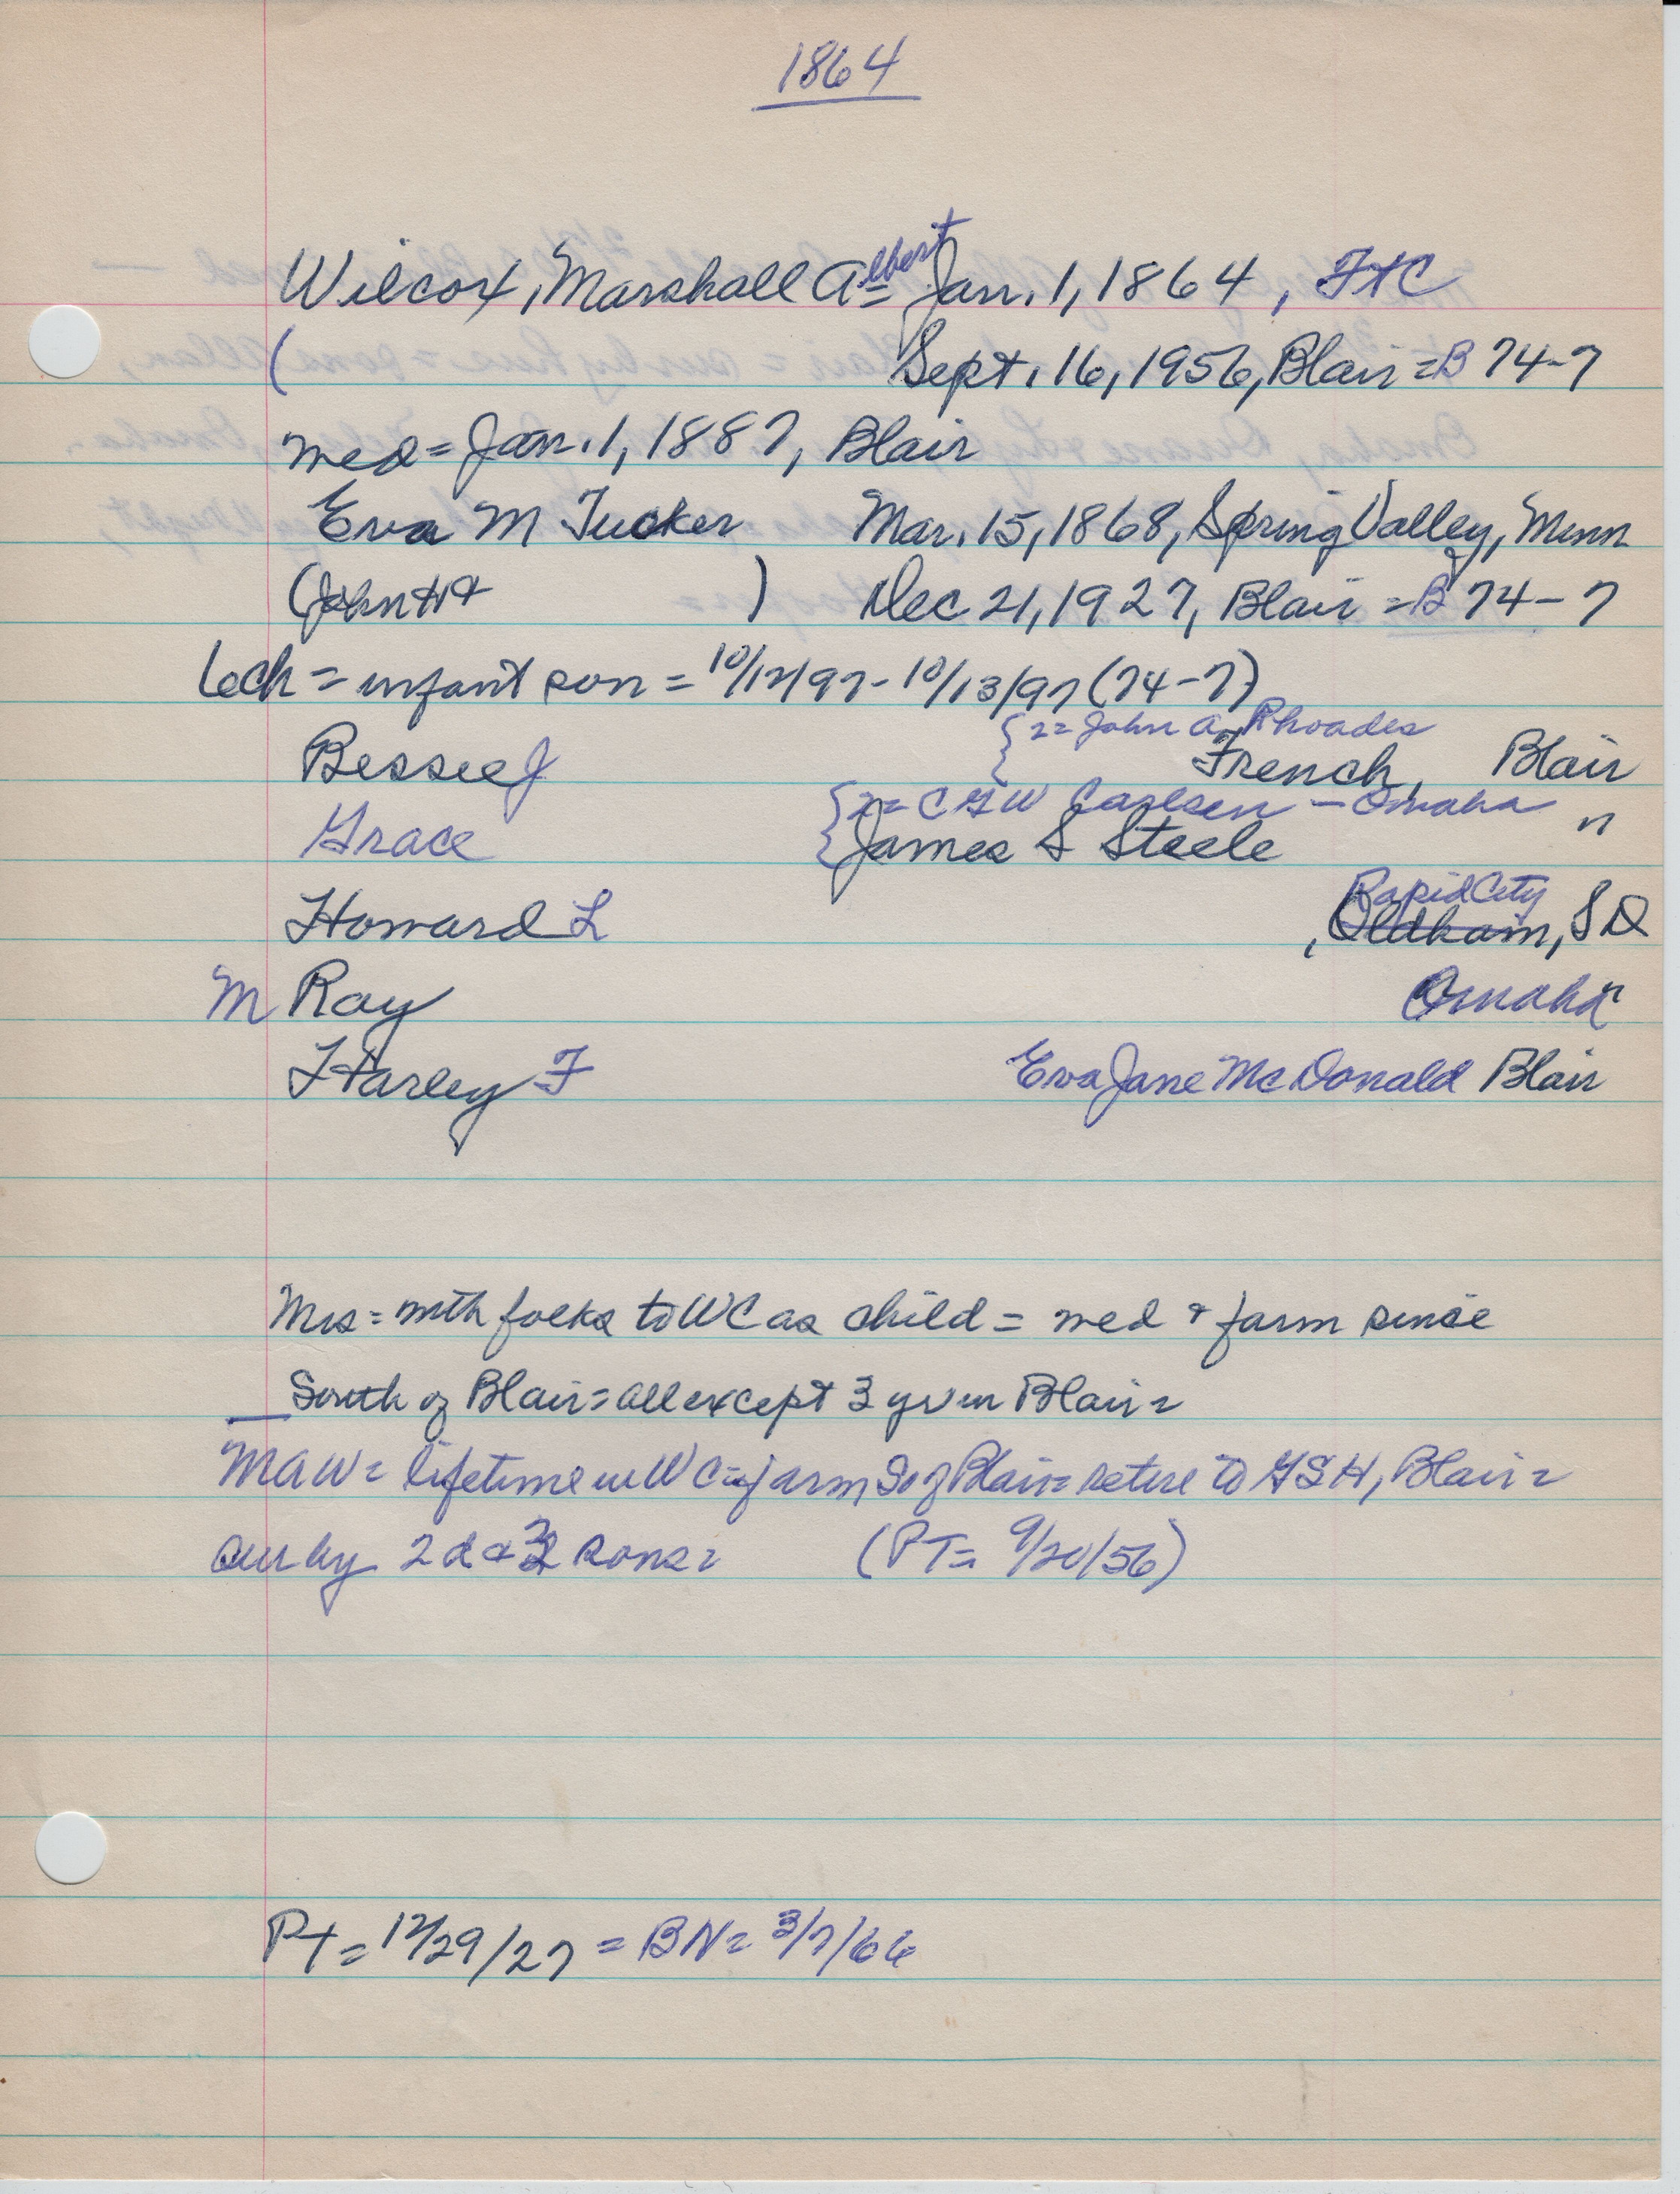 1864
Wilcox, Marshall Albert = Jan. 1, 1864, FtC
( Sept. 16, 1956, Blair = B 74-7
med = Jan. 1, 1887, Blair
Eva M Tucker Mar. 15, 1868, Spring Valley, Minn
(John H ) Dec 21, 1927, Blair = B 74-7
6ch = infant son = 10/12/97 - 10/13/97 (74-7)
{ 2= John A. Rhoades
Bessie J French, Blair
{ 2= C G W Carlsen - Omaha
Grace James S Steele "
Rapid City
Howard L , Oldham, S D
M Ray Omaha
Harley F Eva Jane McDonald Blair
Mrs = with folks to WC as child = med & farm since
South of Blair = all except 3 yr in Blair =
MAW = lifetime in WC = farm So of Blair = retire to GSH, Blair =
sur by 2 d & 3 sons = (PT = 9/20/56)
PT = 12/29/27 = BN = 3/7/66